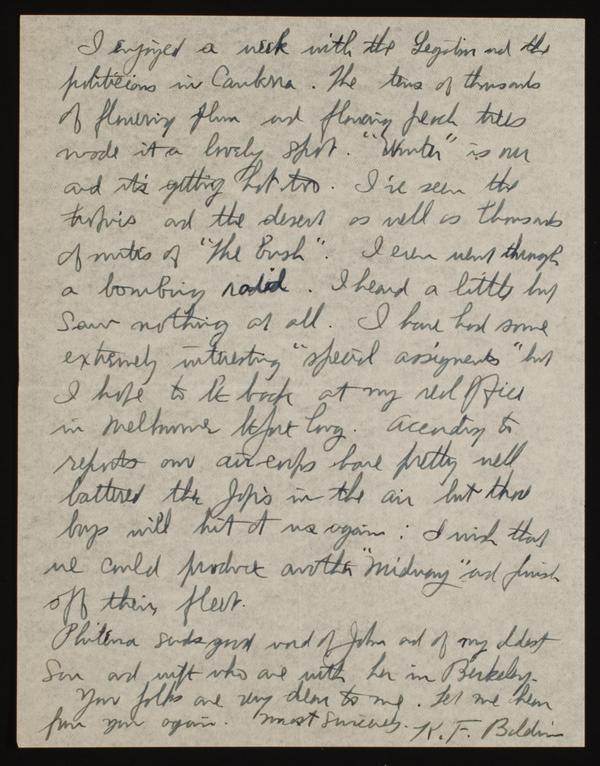 I enjoyed a week with the Legation and the
politicians in Canberra. The tens of thousands
of flowering plum and flowering peach trees
made it a lovely spot. "Winter" is over
and it's getting hot too. I've seen the
tropics and the desert as well as thousands
of miles of "the bush". I even went through
a bombing raid. I heard a little but
saw nothing at all. I have had some
extremely interesting "special assigments" but
I hope to be back at my real office
in Melbourne before long. According to
reports our air-corps have pretty well
battered the Jap's in the air but those
boys will hit at us again: I wish that
we could produce another "Midway" and finish
off their fleet.
Philena sends good word of John and of my oldest
Son and wife who are with her in Berkeley.
Your folks are very dear to me. Let me hear
from you again. Most Sincerely K. F. Baldwin